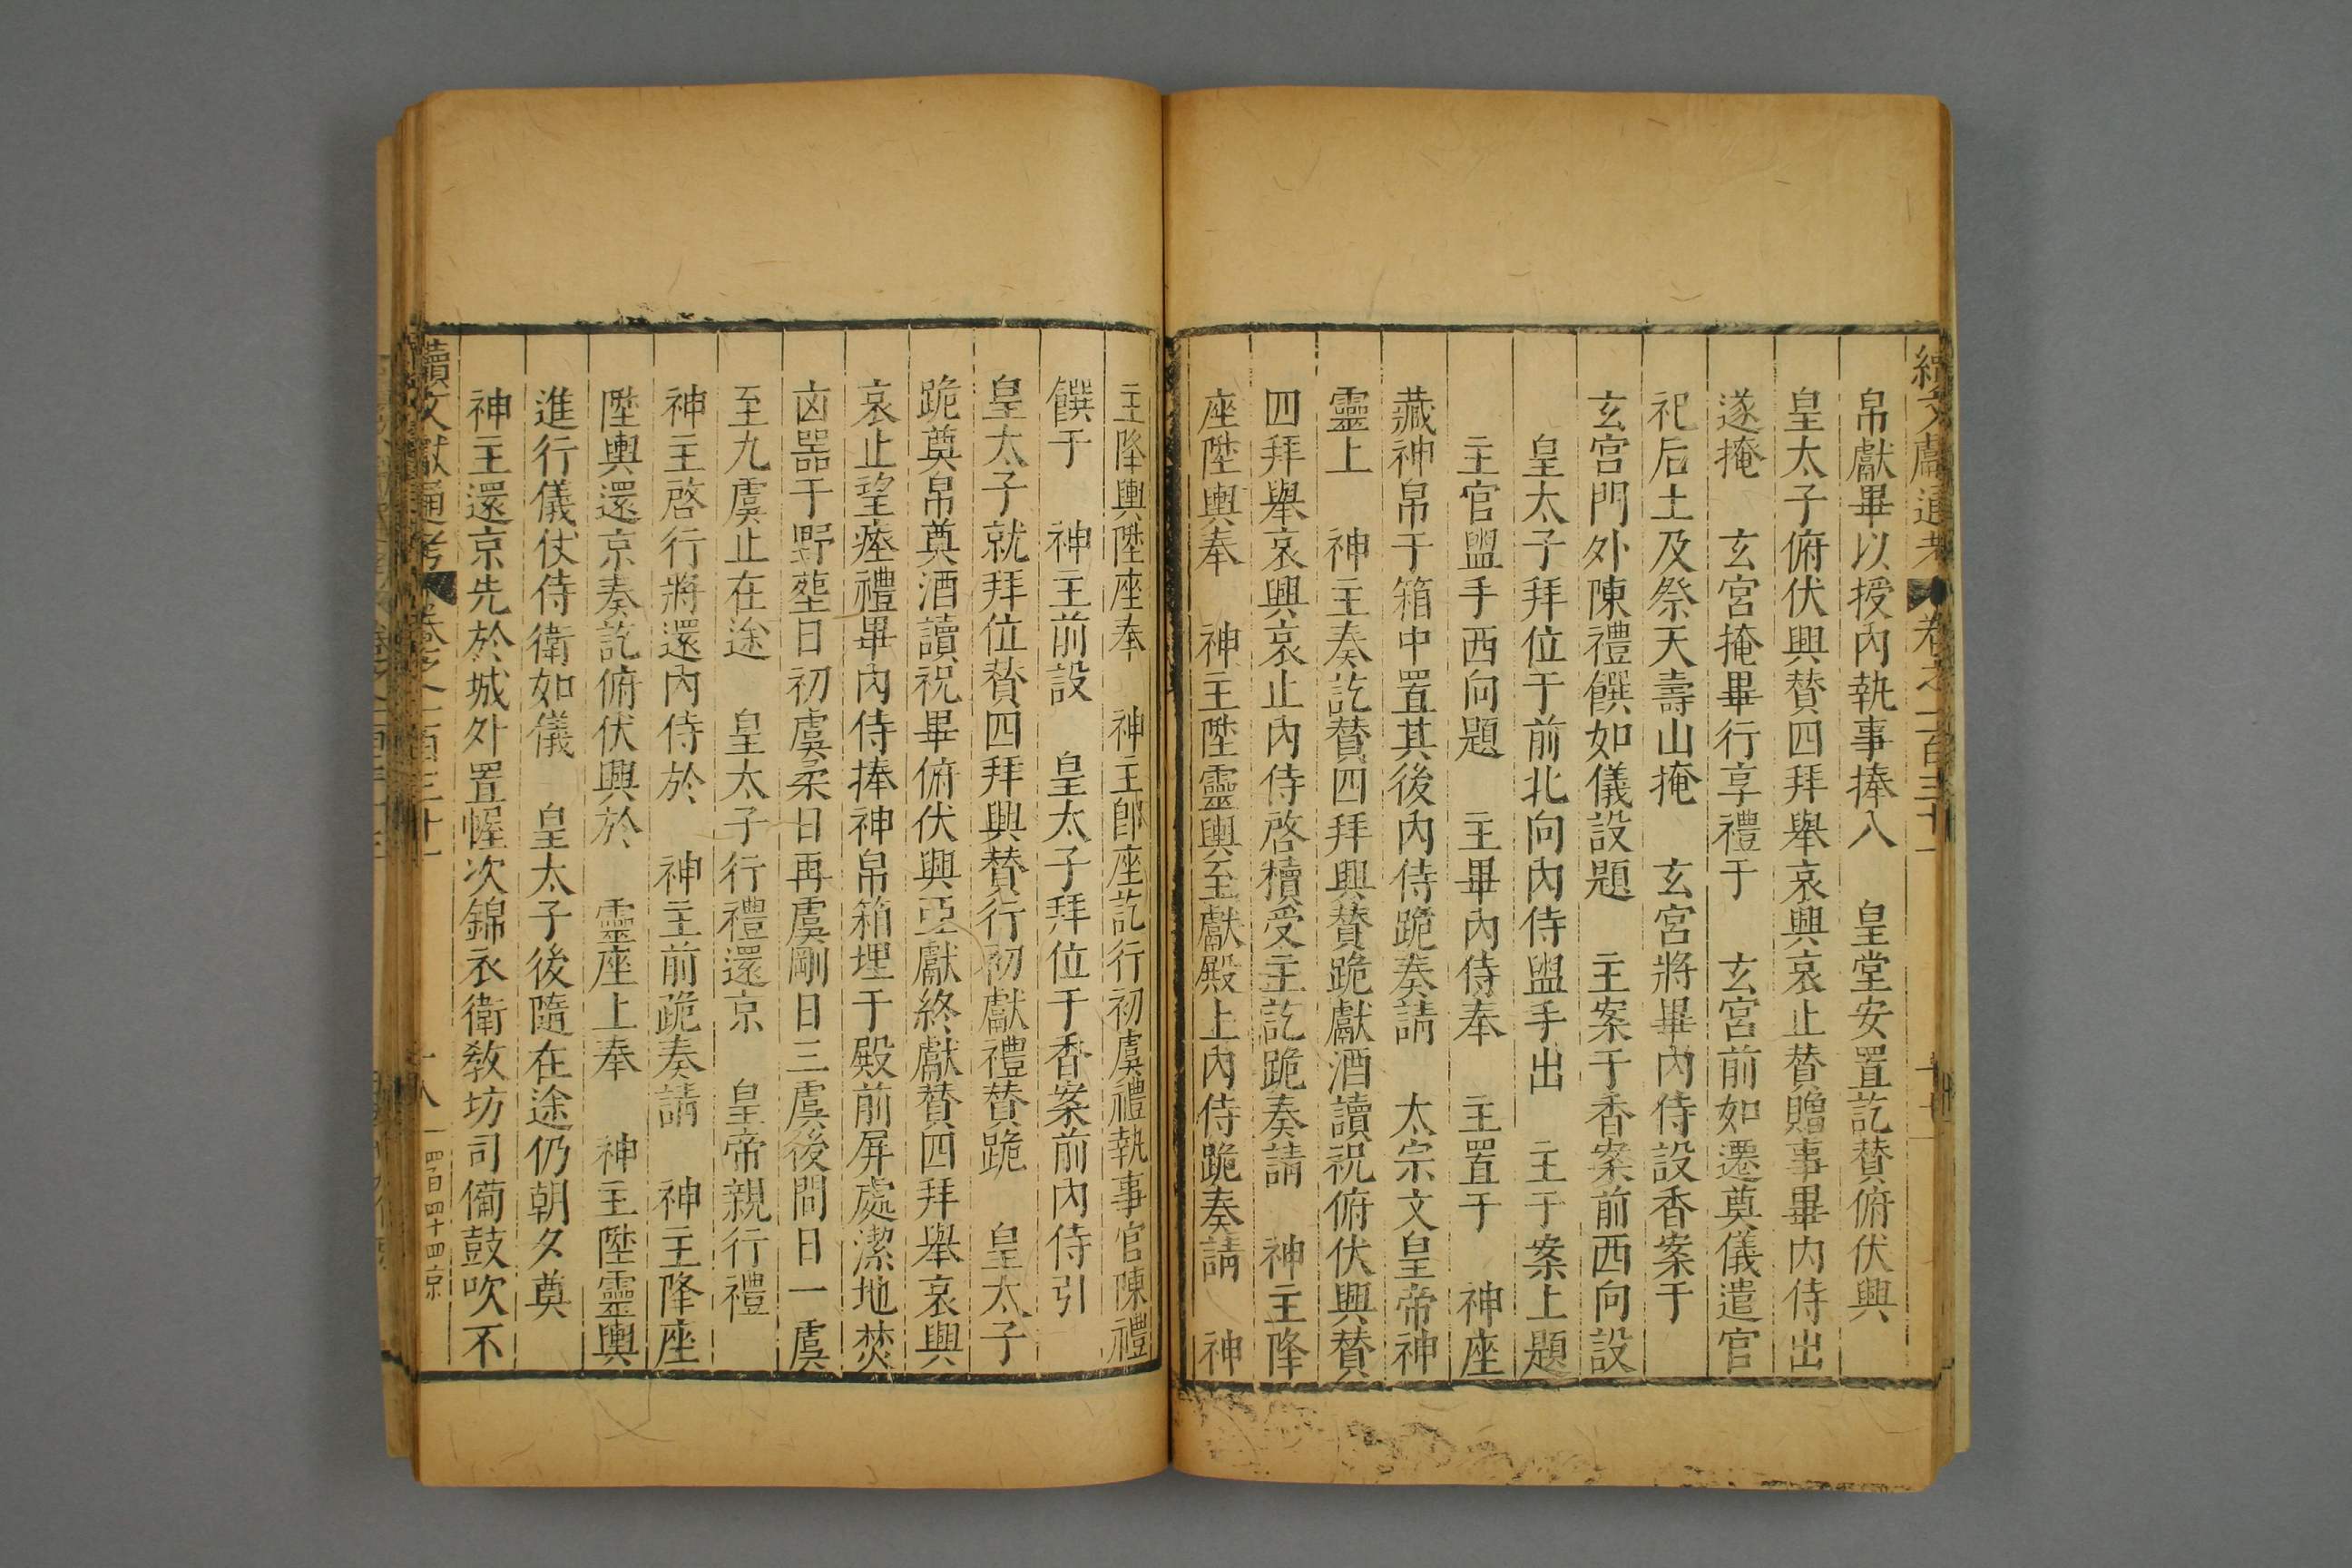 續文獻通考 卷之一百三十一 十七
帛獻畢以授內執事捧入　皇堂安置訖贊俯伏興
皇太子俯伏興贊四拜舉哀興哀止替贈事畢內侍出
遂掩　玄宮掩畢行享禮于　玄宮前如遷奠儀遣官
祀后土及祭天壽山掩　玄宮將畢內侍設香案于
玄宮門外陳禮饌如儀設題　主案于香案前西向設
皇太子拜位于前北向內侍盥手出　主于案上題
主官盥手西向題　主畢內侍奉　主置于　神座
藏神帛于箱中置其後內侍跪奏請　太宗文皇帝神
靈上　神主奏訖贊四拜興贊跪獻酒讀祝俯伏興贊
四拜舉哀興哀止內侍啓櫝受主訖跪奏請　神主降
座陞輿奉　神主陞靈輿至獻殿上內侍跪奏請　神
主降輿陞座奉　神主卽座訖行初虞禮執事官陳禮
饌于　神主前設　皇太子拜位于香案前內侍引
皇太子就拜位贊四拜興贊行初獻禮贊跪　皇太子
跪奠帛奠酒讀祝畢俯伏興亞獻終獻贊四拜舉哀興
哀止望瘞禮畢內侍捧神帛箱埋于殿前屏處潔地焚
凶噐于野塟日初虞柔日再虞剛日三虞後間日一虞
至九虞止在途　皇太子行禮還京　皇帝親行禮
神主啓行將還內侍於　神主前跪奏請　神主降座
陞輿還京奏訖俯伏興於　靈座上奉　神主陞靈輿
進行儀仗侍衛如儀　皇太子後隨在途仍朝夕奠
神主還京先於城外置幄次錦衣衛敎坊司備鼓吹不
續文獻通考 卷之一百三十一 十八 四百四十四 京